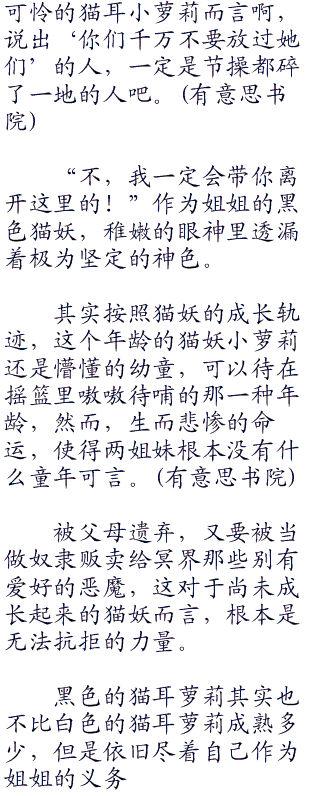 可怜的猫耳小萝莉而言啊，
说出‘你们千万不要放过她
们’的人，一定是节操都碎
了一地的人吧。(有意思书
院)
“不，我一定会带你离
开这里的！”作为姐姐的黑
色猫妖，稚嫩的眼神里透漏
着极为坚定的神色。
其实按照猫妖的成长轨
迹，这个年龄的猫妖小萝莉
还是懵懂的幼童，可以待在
摇篮里嗷嗷待哺的那一种年
龄，然而，生而悲惨的命
运，使得两姐妹根本没有什
么童年可言。(有意思书院)
被父母遗弃，又要被当
做奴隶贩卖给冥界那些别有
爱好的恶魔，这对于尚未成
长起来的猫妖而言，根本是
无法抗拒的力量。
黑色的猫耳萝莉其实也
不比白色的猫耳萝莉成熟多
少，但是依旧尽着自己作为
姐姐的义务